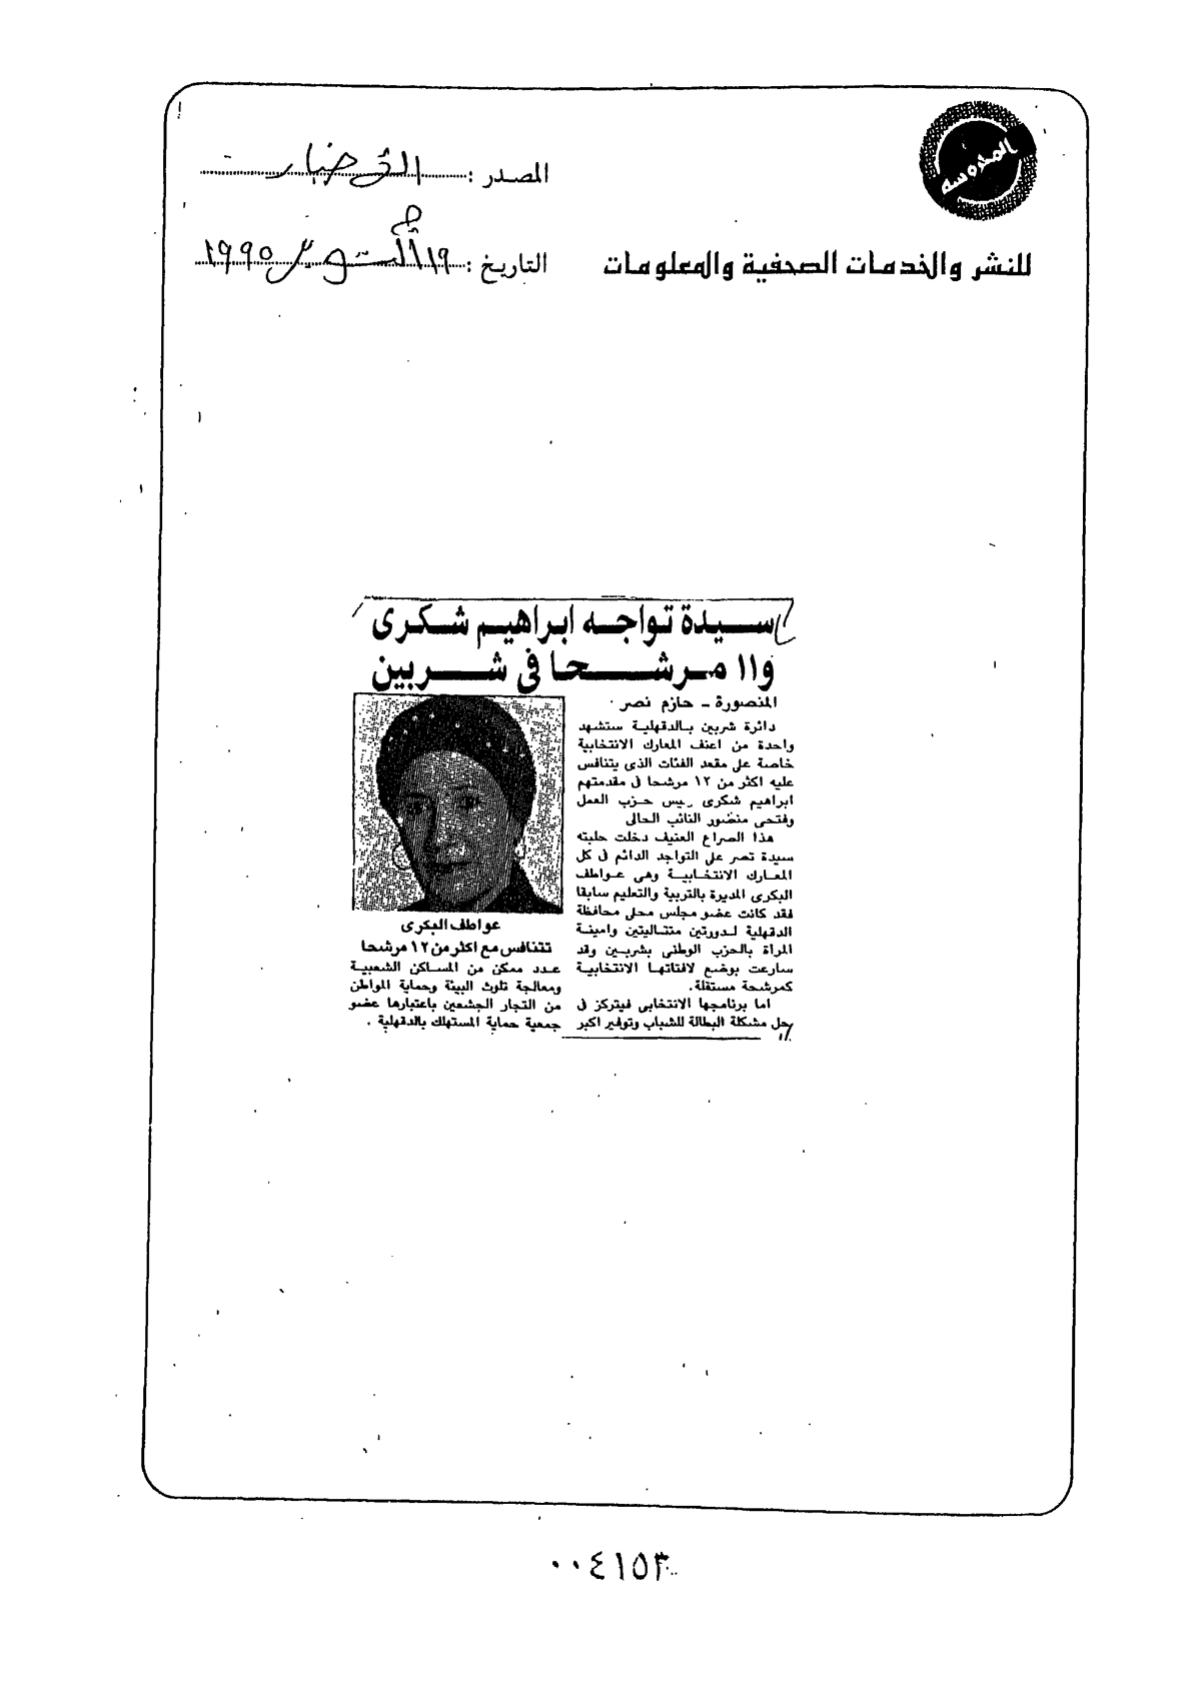 المحروسة
للنشر والخدمات الصحفية والمعلومات
المصدر : الأخبار
التاريخ : ١٩ أكتوبر ١٩٩٥
سيدة تواجه ابراهيم شكرى
و١١ مرشحا فى شربين
المنصورة - حازم نصر
دائرة شربين بالدقهلية ستشهد
واحدة من اعنف المعارك الانتخابية
خاصة على مقعد الفئات الذى يتنافس
عليه اكثر من ١٢ مرشحا فى مقدمتهم
ابراهيم شكرى رئيس حزب العمل
وفتحى منصور النائب الحالى
هذا الصراع العنيف دخلت حلبته
سيدة تصر على التواجد الدائم فى كل
المعارك الانتخابية وهى عواطف
البكرى المديرة بالتربية والتعليم سابقا
فقد كانت عضو مجلس محلى محافظة
الدقهلية لدورتين متتاليتين وامينة
المراة بالحزب الوطنى بشربين وقد
سارعت بوضع لافتاتها الانتخابية
كمرشحة مستقلة.
اما برنامجها الانتخابى فيتركز فى
حل مشكلة البطالة للشباب وتوفير اكبر
عواطف البكرى
تتنافس مع اكثر من ١٢ مرشحا
عدد ممكن من المساكن الشعبية
ومعالجة تلوث البيئة وحماية المواطن
من التجار الجشعين باعتبارها عضو
جمعية حماية المستهلك بالدقهلية .
٠٠٤١٥٣